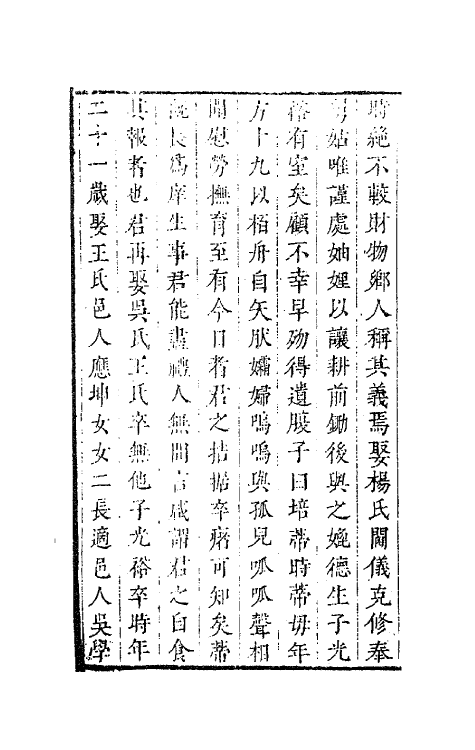 時絶不較財物鄉人稱其義焉娶楊氏閫儀克修奉
舅姑唯謹處妯娌以讓耕前鋤後與之媲德生子光
裕有室矣顧不幸早殀得遺腹子曰培蒂時蒂毋年
方十九以栢舟自矢肰孀婦嗚嗚與孤兒呱呱聲相
聞慰勞撫育至有今日者君之拮据卒瘏可知矣蒂
既長爲庠生事君能盡禮人無間言咸謂君之自食
其報者也君再娶吳氏王氏卒無他子光裕卒時年
二十一歲娶王氏邑人應坤女女二長適邑人吳學